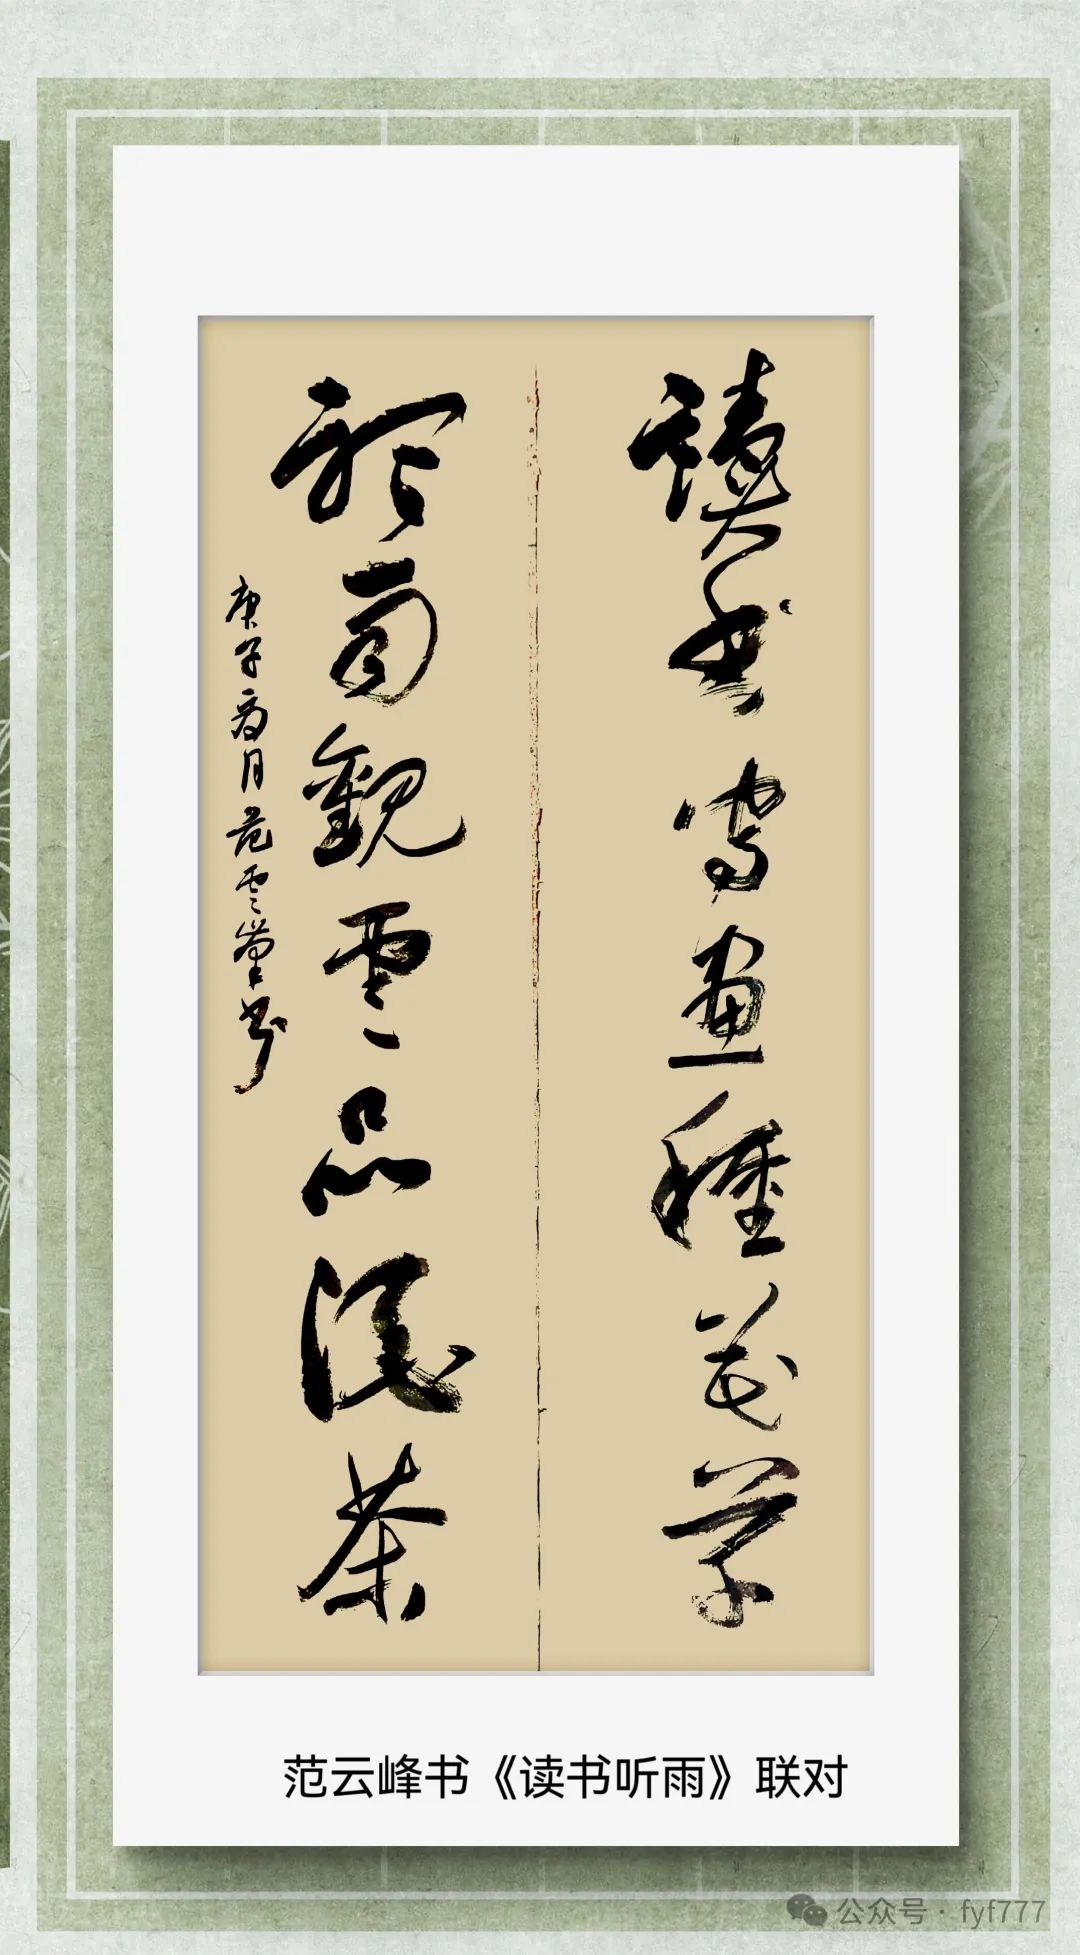 讀書寫畫種花草
聽雨觀雲品酒茶
庚子夏月范雲峯书
范云峰书《读书听雨》联对
公众号·fyf777